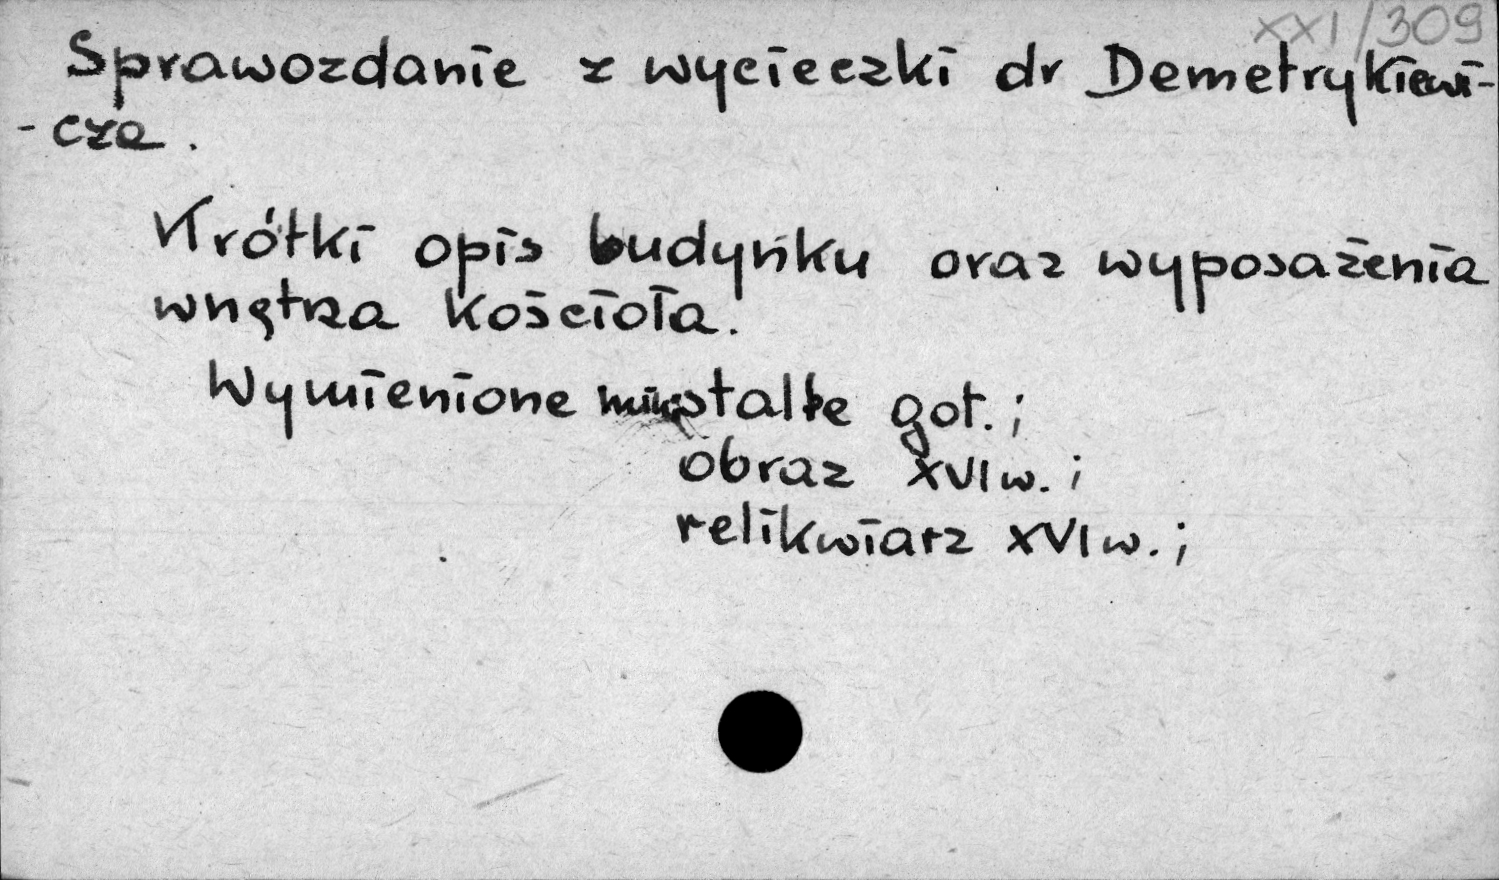 XXI/309
Sprawozdanie z wycieczki dr Demetrykiewi-
-cza.
Krótki opis budynku oraz wyposażenia
wnętrza kościoła.
Wymienione stalle got.;
obraz XVI w.;
relikwiarz XVI w.;